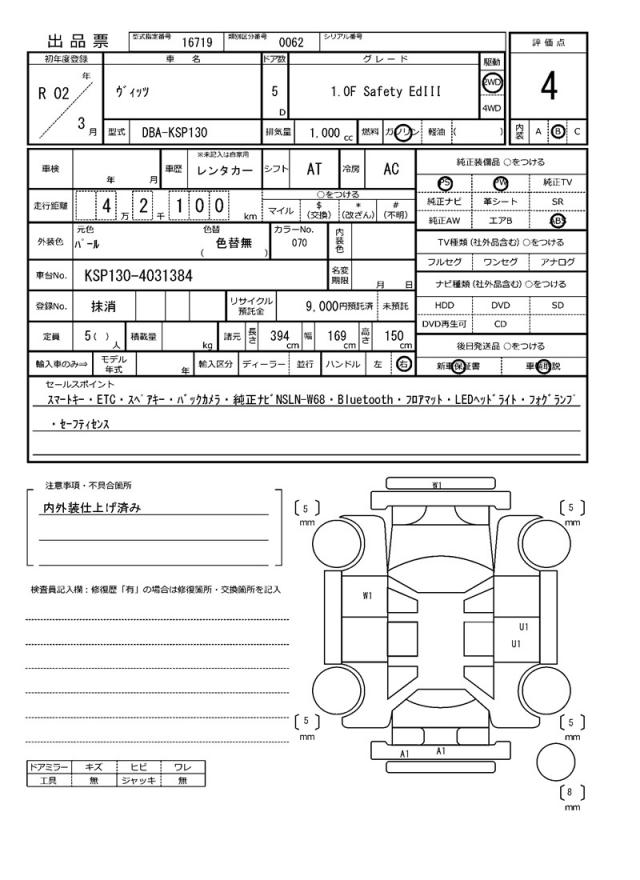 出品票
型式指定番号 16719 類別区分番号 0062 シリアル番号
評価点
4
初年度登録 車名 ドア数 グレード 駆動
R 02 年 3 月
ヴィッツ
5 D
1.0F Safety EdIII
2WD
4WD
型式 DBA-KSP130 排気量 1,000 cc 燃料 ガソリン 軽油 ( )
内装 A B C
車検 年 月 車歴 ※未記入は自家用 レンタカー シフト AT 冷房 AC
走行距離 4 万 2 千 1 0 0 km
○をつける
マイル $(交換) *(改ざん) #(不明)
外装色 元色 パール 色替 色替無 ( )
カラーNo. 070 内装色
車台No. KSP130-4031384 名変期限 月 日
登録No. 抹消 リサイクル預託金 9,000円預託済 未預託
定員 5( )人 積載量 kg 諸元 長さ 394 cm 幅 169 cm 高さ 150 cm
輸入車のみ⇒ モデル年式 年 輸入区分 ディーラー 並行 ハンドル 左 右
純正装備品 ○をつける
PS PW 純正TV
純正ナビ 革シート SR
純正AW エアB ABS
TV種類 (社外品含む) ○をつける
フルセグ ワンセグ アナログ
ナビ種類 (社外品含む) ○をつける
HDD DVD SD
DVD再生可 CD
後日発送品 ○をつける
新車保証書 車輌取説
セールスポイント
スマートキー・ETC・スペアキー・バックカメラ・純正ナビNSLN-W68・Bluetooth・フロアマット・LEDヘッドライト・フォグランプ
・セーフティセンス
注意事項・不具合箇所
内外装仕上げ済み
検査員記入欄：修復歴「有」の場合は修復箇所・交換箇所を記入
ドアミラー キズ ヒビ ワレ
工具 無 ジャッキ 無
W1
5 mm
5 mm
W1
U1
U1
5 mm
5 mm
A1 A1
8 mm